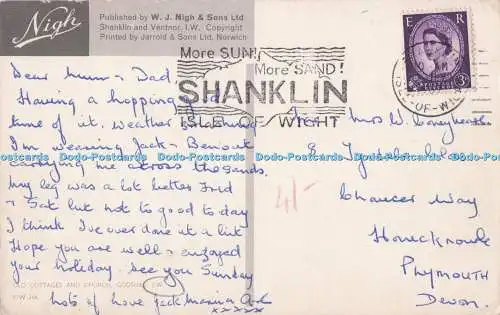 Nigh
Published by W. J. Nigh & Sons Ltd
Shanklin and Ventnor, I.W. Copyright
Printed by Jarrold & Sons Ltd, Norwich
E R
3D
More SUN!
More SAND!
SHANKLIN
ISLE OF WIGHT
-OF-WIG
Dear Mum & Dad
Having a hopping good
time of it weather
I'm wearing Jack &
carrying me across the sands.
My leg was a lot better Frid
& Sat but not to good to day
I think I've over done it a bit
Hope you are well & enjoyed
your holiday. See you Sunday
lots of love Jack
xxxxx
OLD COTTAGES AND CHURCH, GODSHILL, I.W.
Mrs W
Chaucer Way
Honicknowle
Plymouth
Devon.
4/-
Dodo-Postcards Dodo-Postcards Dodo-Postcards Dodo-Postcards Dodo-Postcards Dodo-Postcards